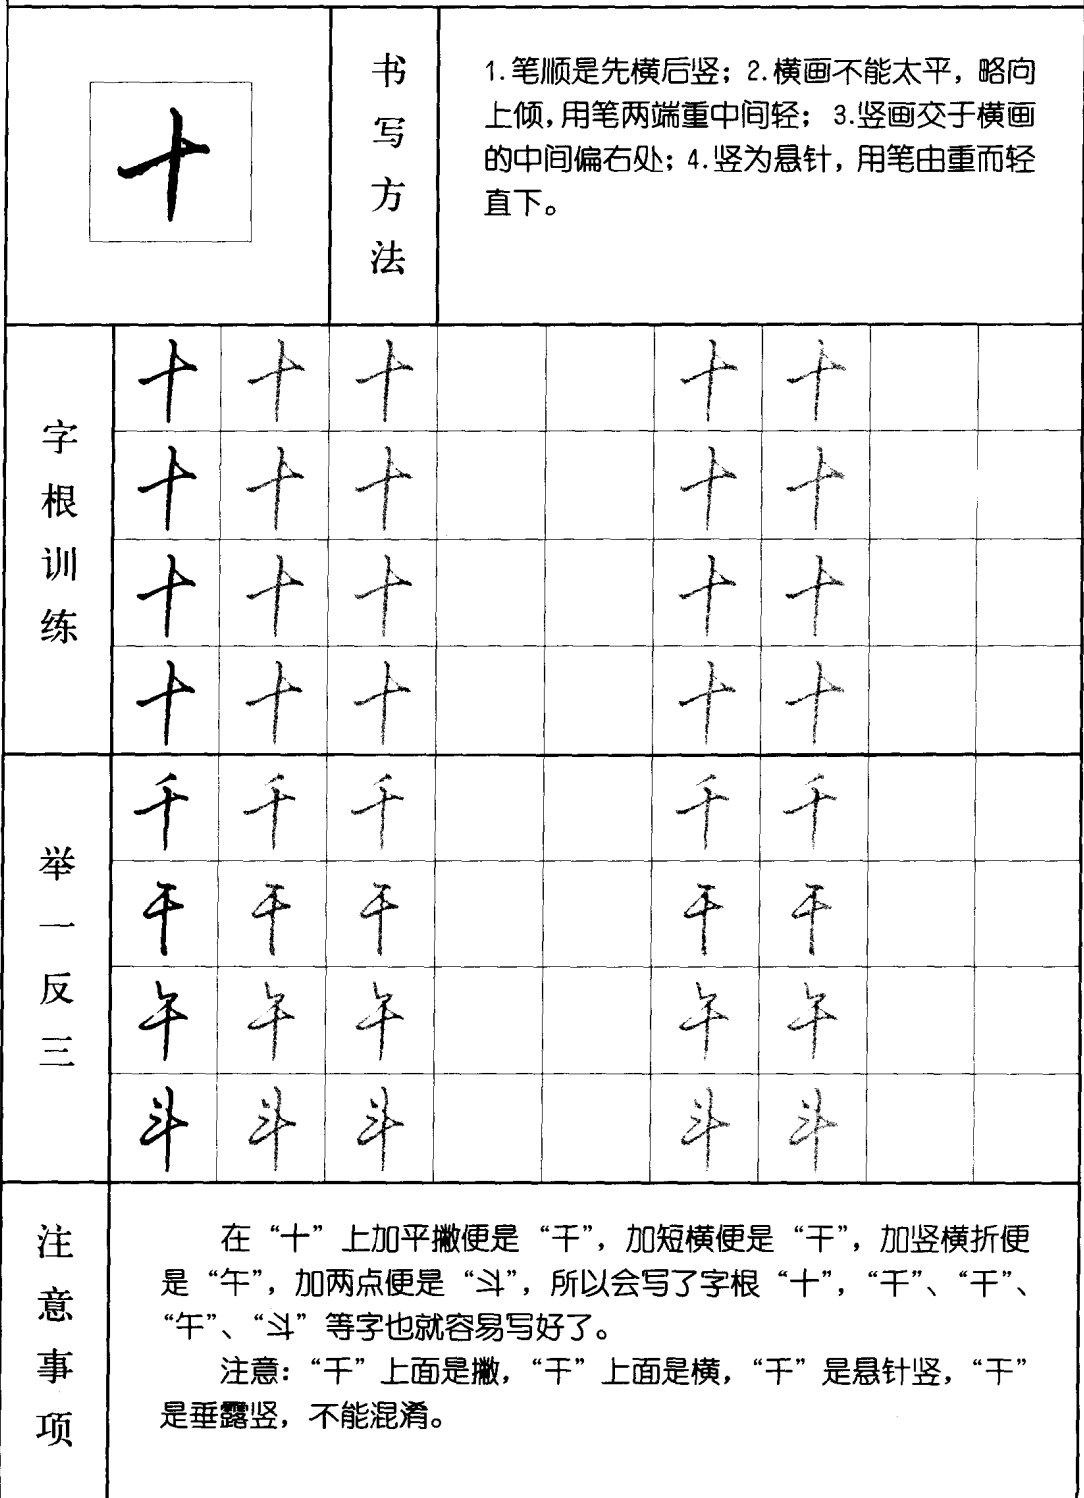 十
书写方法
1.笔顺是先横后竖；2.横画不能太平，略向
上倾，用笔两端重中间轻；3.竖画交于横画
的中间偏右处；4.竖为悬针，用笔由重而轻
直下。
字根训练
十 十 十 十 十
十 十 十 十 十
十 十 十 十 十
十 十 十 十 十
举一反三
千 千 千 千 千
干 干 干 干 干
午 午 午 午 午
斗 斗 斗 斗 斗
注意事项
在“十”上加平撇便是“千”，加短横便是“干”，加竖横折便
是“午”，加两点便是“斗”，所以会写了字根“十”，“千”、“干”、
“午”、“斗”等字也就容易写好了。
注意：“千”上面是撇，“干”上面是横，“千”是悬针竖，“干”
是垂露竖，不能混淆。